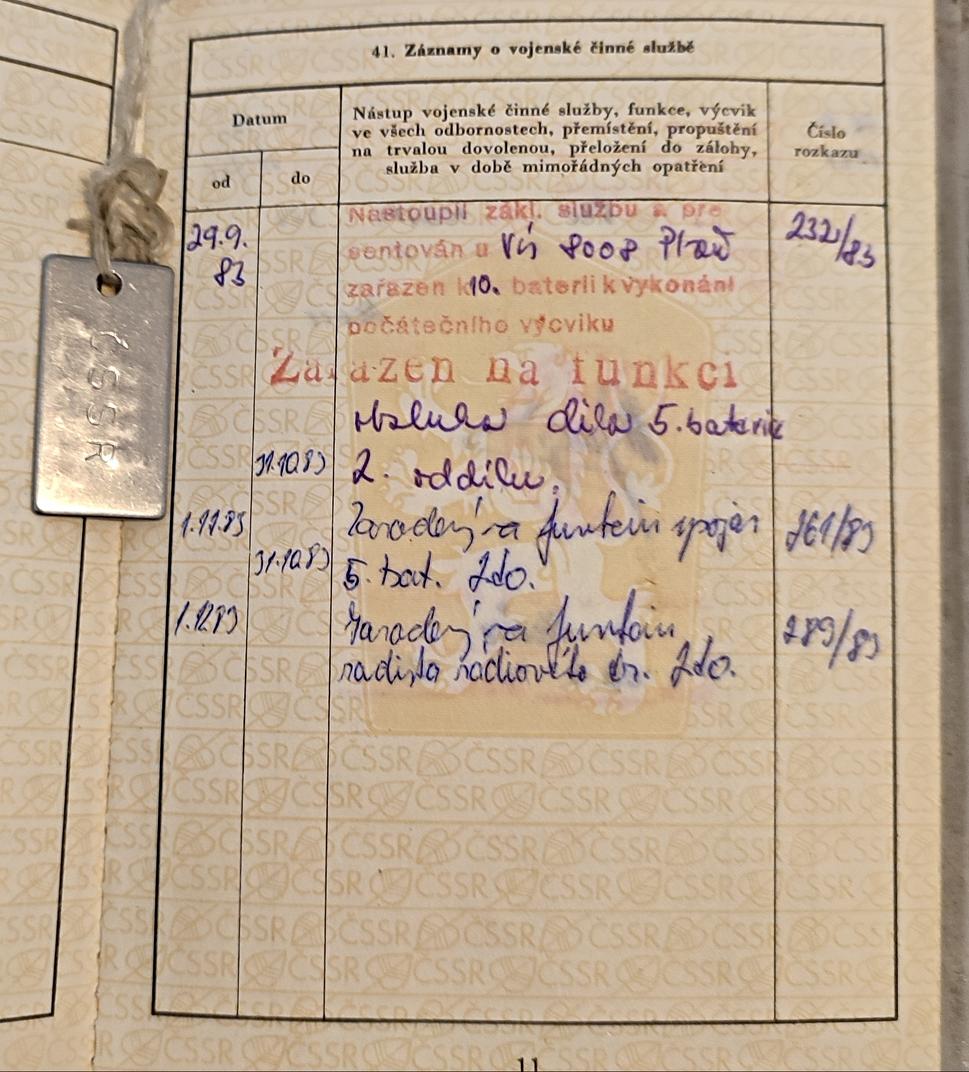 41. Záznamy o vojenské činné službě
Datum
od
do
Nástup vojenské činné služby, funkce, výcvik
ve všech odbornostech, přemístění, propuštění
na trvalou dovolenou, přeložení do zálohy,
služba v době mimořádných opatření
Číslo
rozkazu
29.9.
83
Nastoupil zákl. službu a pre
sentován u VÚ 8008 Plzeň
zařazen k 10. baterii k vykonání
počátečního výcviku
232/83
Zařazen na funkci
obsluha děla 5. baterie
31.10.83 2. oddílu.
1.11.83 Zaradený na funkciu spojár 261/83
31.10.83 5. bat. 2do.
1.12.83 Zaradený na funkciu 289/83
radista rádiového dr. 2do.
ČSSR
11